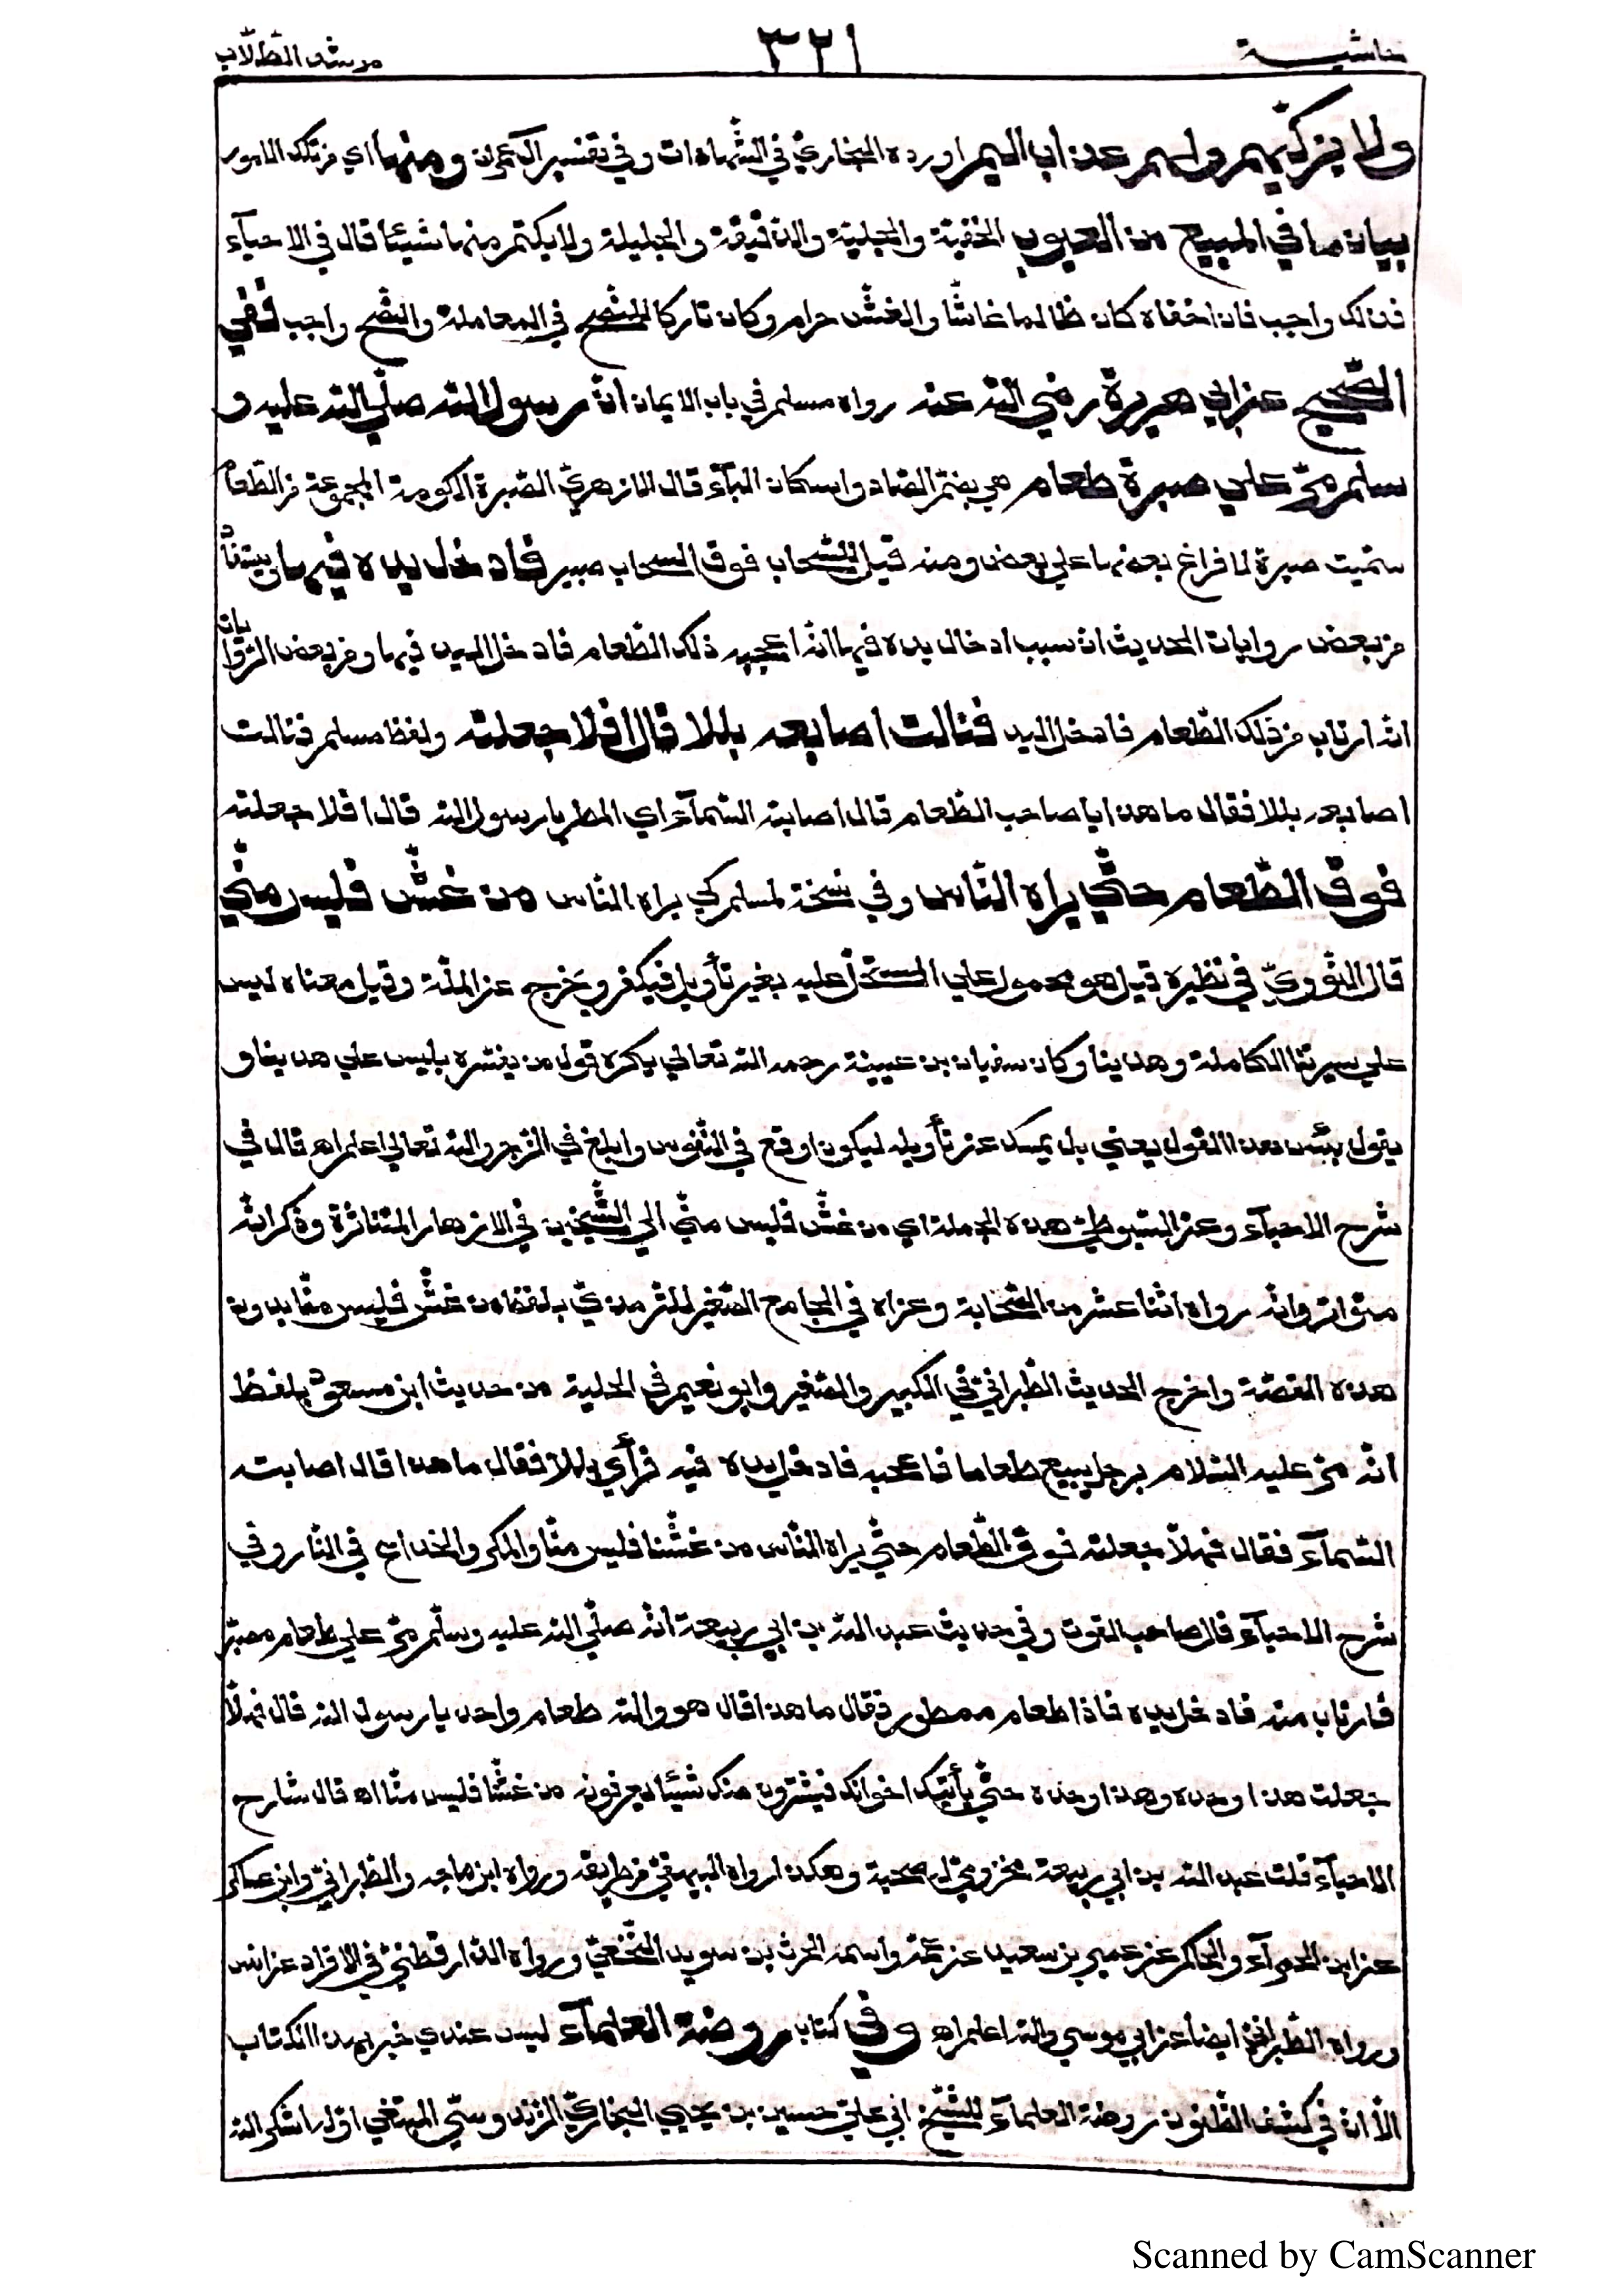 حاشية ٣٢١ مرشد الطلّاب
ولا يزكّيهم ولهم عذاب اليم اورده البخاريّ في الشّهادات وفي تفسير اٰل عمران ومنها اي من تلك الامور
بيان ما في المبيع من العيوب الخفية والجلية والدقيقة والجليلة ولا يكتم منها شيئا قال في الاحيآء
فذلك واجب فان اخفاه كان ظالما غاشّا والغشّ حرام وكان تاركا للنّصح في المعاملة والنّصح واجب ففي
الصّحيح عن ابي هريرة رضي اللّه عنه رواه مسلم في باب الايمان انّ رسول اللّه صلّي اللّه عليه و
سلم مرّ علي صبرة طعام هي بضمّ الصّاد واسكان البآء قال الازهريّ الصّبرة الكومة المجموعة من الطّعام
سمّيت صبرة لافراغ بعضها علي بعض ومنه قيل للسّحاب فوق السحاب صبير فادخل يده فيها وبيّنّا
من بعض روايات الحديث انّ سبب ادخال يده فيها انّه اعجبه ذلك الطّعام فادخل اليد فيها ومن بعض الرّوايات
انّه ارتاب من ذلك الطّعام فادخل اليد فنالت اصابعه بللا قال افلا جعلته ولفظ مسلم فنالت
اصابعه بللا فقال ما هذا يا صاحب الطّعام قال اصابته السّمآء اي المطر يا رسول اللّه قال افلا جعلته
فوق الطّعام حتّي يراه النّاس وفي نسخة لمسلم كي يراه النّاس من غشّ فليس منّي
قال النّوويّ في نظيره قيل هو محمول علي المستحلّ عليه بغير تأويل فيكفر ويخرج عن الملّة وقيل معناه ليس
علي سيرتنا الكاملة وهدينا وكان سفيان بن عيينة رحمه اللّه تعالي يكره قول من يفسّره بليس علي هدينا و
يقول بئس هذا القول يعني بل يمسك عن تأويله ليكون اوقع في النّفوس وابلغ في الزّجر واللّه تعالي اعلم اهـ قال في
شرح الاحيآء وعزا السّيوطيّ هذه الجملة اي من غشّ فليس منّي الي الشّيخين في الازهار المتناثرة وذكر انّه
متواتر وانّه رواه اثنا عشر من الصّحابة وعزاه في الجامع الصّغير للتّرمذيّ بلفظ من غشّ فليس منّا بدون
هذه القصّة واخرج الحديث الطّبرانيّ في الكبير والصّغير وابو نعيم في الحلية من حديث ابن مسعود بلفظ
انّه مرّ عليه السّلام برجل يبيع طعاما فاعجبه فادخل يده فيه فرأي بللا فقال ما هذا قال اصابته
السّمآء فقال فهلّا جعلته فوق الطّعام حتّي يراه النّاس من غشّنا فليس منّا والمكر والخداع في النّار وفي
شرح الاحيآء قال صاحب القوت وفي حديث عبد اللّه بن ابي ربيعة انّه صلّي اللّه عليه وسلّم مرّ علي طعام مصبّر
فارتاب منه فادخل يده فاذا طعام ممطور فقال ما هذا قال هو واللّه طعام واحد يا رسول اللّه قال فهلّا
جعلت هذا وحده وهذا وحده حتّي يأتيك اخوانك فيشترون منك شيئا يعرفونه من غشّنا فليس منّا اهـ قال شارح
الاحيآء قلت عبد اللّه بن ابي ربيعة مخزوميّ له صحبة وهكذا رواه البيهقيّ من طريقه ورواه ابن ماجه والطّبرانيّ وابن عساكر
عن ابن الحمرآء والحاكم عن عمير بن سعيد عن عمّه واسمه الحرث بن سويد النّخعيّ ورواه الدّارقطنيّ في الافراد عن انس
ورواه الطّبرانيّ ايضا عن ابي موسي واللّه اعلم اهـ وفي كتاب روضة العلمآء ليس عندي خبر بهذا الكتاب
الّا انّ في كشف الظّنون روضة العلمآء للشّيخ ابي عليّ حسين بن يحيي البخاريّ الزّندوستيّ المبتغي اوله اشكر اللّه
Scanned by CamScanner